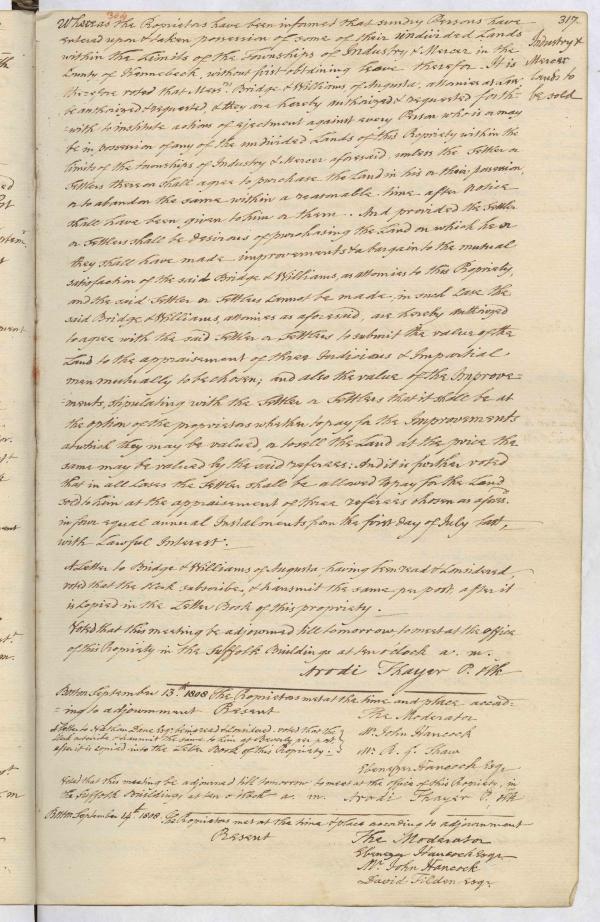 309
317.
Whereas the Propietors have been informed that sundry Persons have
entered upon & taken possession of some of their undivided Lands
within the limits of the Townships of Industry & Mercer in the
County of Kennebeck, without first obtaining leave therefor. It is
therefore voted that Messrs. Bridge & Williams of Augusta, attornies as afore.
be authorized & requested, & they are hereby authorized & requested forth=
=with to institute actions of ejectment against every Person who is or may
be in possession of any of the undivided Lands of this Propriety within the
limits of the townships of Industry & Mercer aforesaid, unless the Settler or
Settlers thereon shall agree to purchase the Land in his or their possession,
or to abandon the same within a reasonable time after notice
shall have been given to him or them .. And provided the Settler
or Settlers shall be desirous of purchasing the Land on which he or
they shall have made improvements & a bargain to the mutual
satisfaction of the said Bridge & Williams, as attornies to this Propriety,
and the said Settler or Settlers cannot be made, in such case the
said Bridge & Williams, attornies as aforesaid, are hereby authorized
to agree with the said Settler or Settlers to submit the value of the
Land to the appraisement of three Indicious & Impartial
men mutually to be chosen; and also the value of the Improve=
=ments, stipulating with the Settler or Settlers that it shall be at
the option of the proprietors whether to pay for the Improvements
at which they may be valued, or to sell the Land at the price the
same may be valued by the said referees: And it is further voted
that in all cases the Settler shall be allowed to pay for the Land
sold to him at the appraisement of three referees chosen as afores.d
in four equal annual Instalments from the first day of July last,
with Lawful Interest.
Industry &
Mercer
Lands to
be sold
A Letter to Bridge & Williams of Augusta having been read & considered,
voted that the Clerk subscribe, & transmit the same per post, after it
is copied in the Letter Book of this propriety.
Voted that this meeting be adjourned till tomorrow to meet at the office
of this Propriety in the Suffolk Buildings at ten o clock a. m.
Arodi Thayer P. Clk
Boston September 13.th 1808 The Propietors met at the time and place accord-
=ing to adjournment Present
The Moderator
Mr. John Hancock
Mr. R. G. Shaw
Ebenezer Hancock Esqr
A Letter to Nathan Dane Esqr being read & considered. voted that the
Clerk subscribe & transmit the same to him at Beverly per post
after it is copied into the Letter Book of this Propriety.
Voted that this meeting be adjourned till tomorrow to meet at the office of this Propriety, in
the Suffolk Buildings at ten o Clock a. m. Arodi Thayer P. Clk
Boston September 14th 1808 The Propietors met at the time & place according to adjournment
Present
The Moderator
Ebenezer Hancock Esqr
Mr. John Hancock
David Tilden Esqr